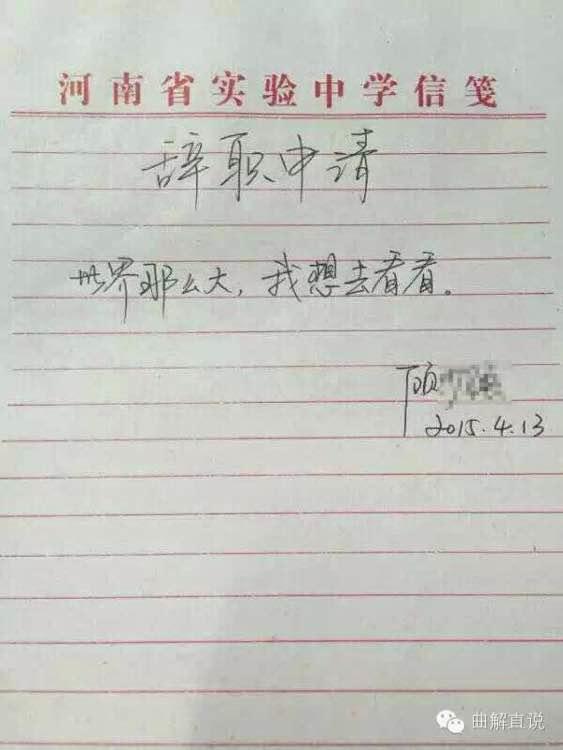 河南省实验中学信笺
辞职申请
世界那么大，我想去看看。
顾
2015.4.13
曲解直说